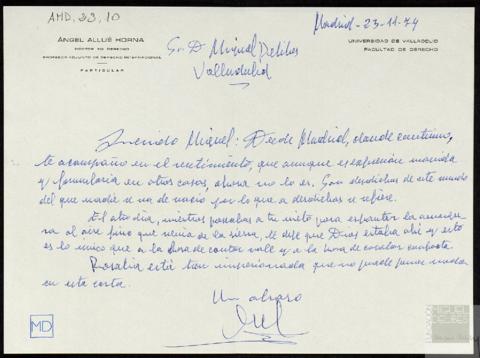 AMD, 23, 10
Madrid - 23-11-74
ÁNGEL ALLUÉ HORNA
DOCTOR EN DERECHO
PROFESOR ADJUNTO DE DERECHO INTERNACIONAL
PARTICULAR
Sr. D Miguel Delibes
Valladolid
UNIVERSIDAD DE VALLADOLID
FACULTAD DE DERECHO
Querido Miguel: Desde Madrid, donde continúo,
te acompaño en el sentimiento, que aunque es expresión manida
y formularia en otros casos, ahora no lo es. Son desdichas de este mundo
del que nadie se va de vacío por lo que a desdichas se refiere.
El otro día, mientras paseabas a tu nieto para
al aire fino que venía de la sierra, te dije que Dios estaba ahí y esto
es lo único que a la hora de contar vale y a la hora de consolar conforta.
Rosalía está tan impresionada que no puede poner nada
en esta carta.
Un abrazo
MD